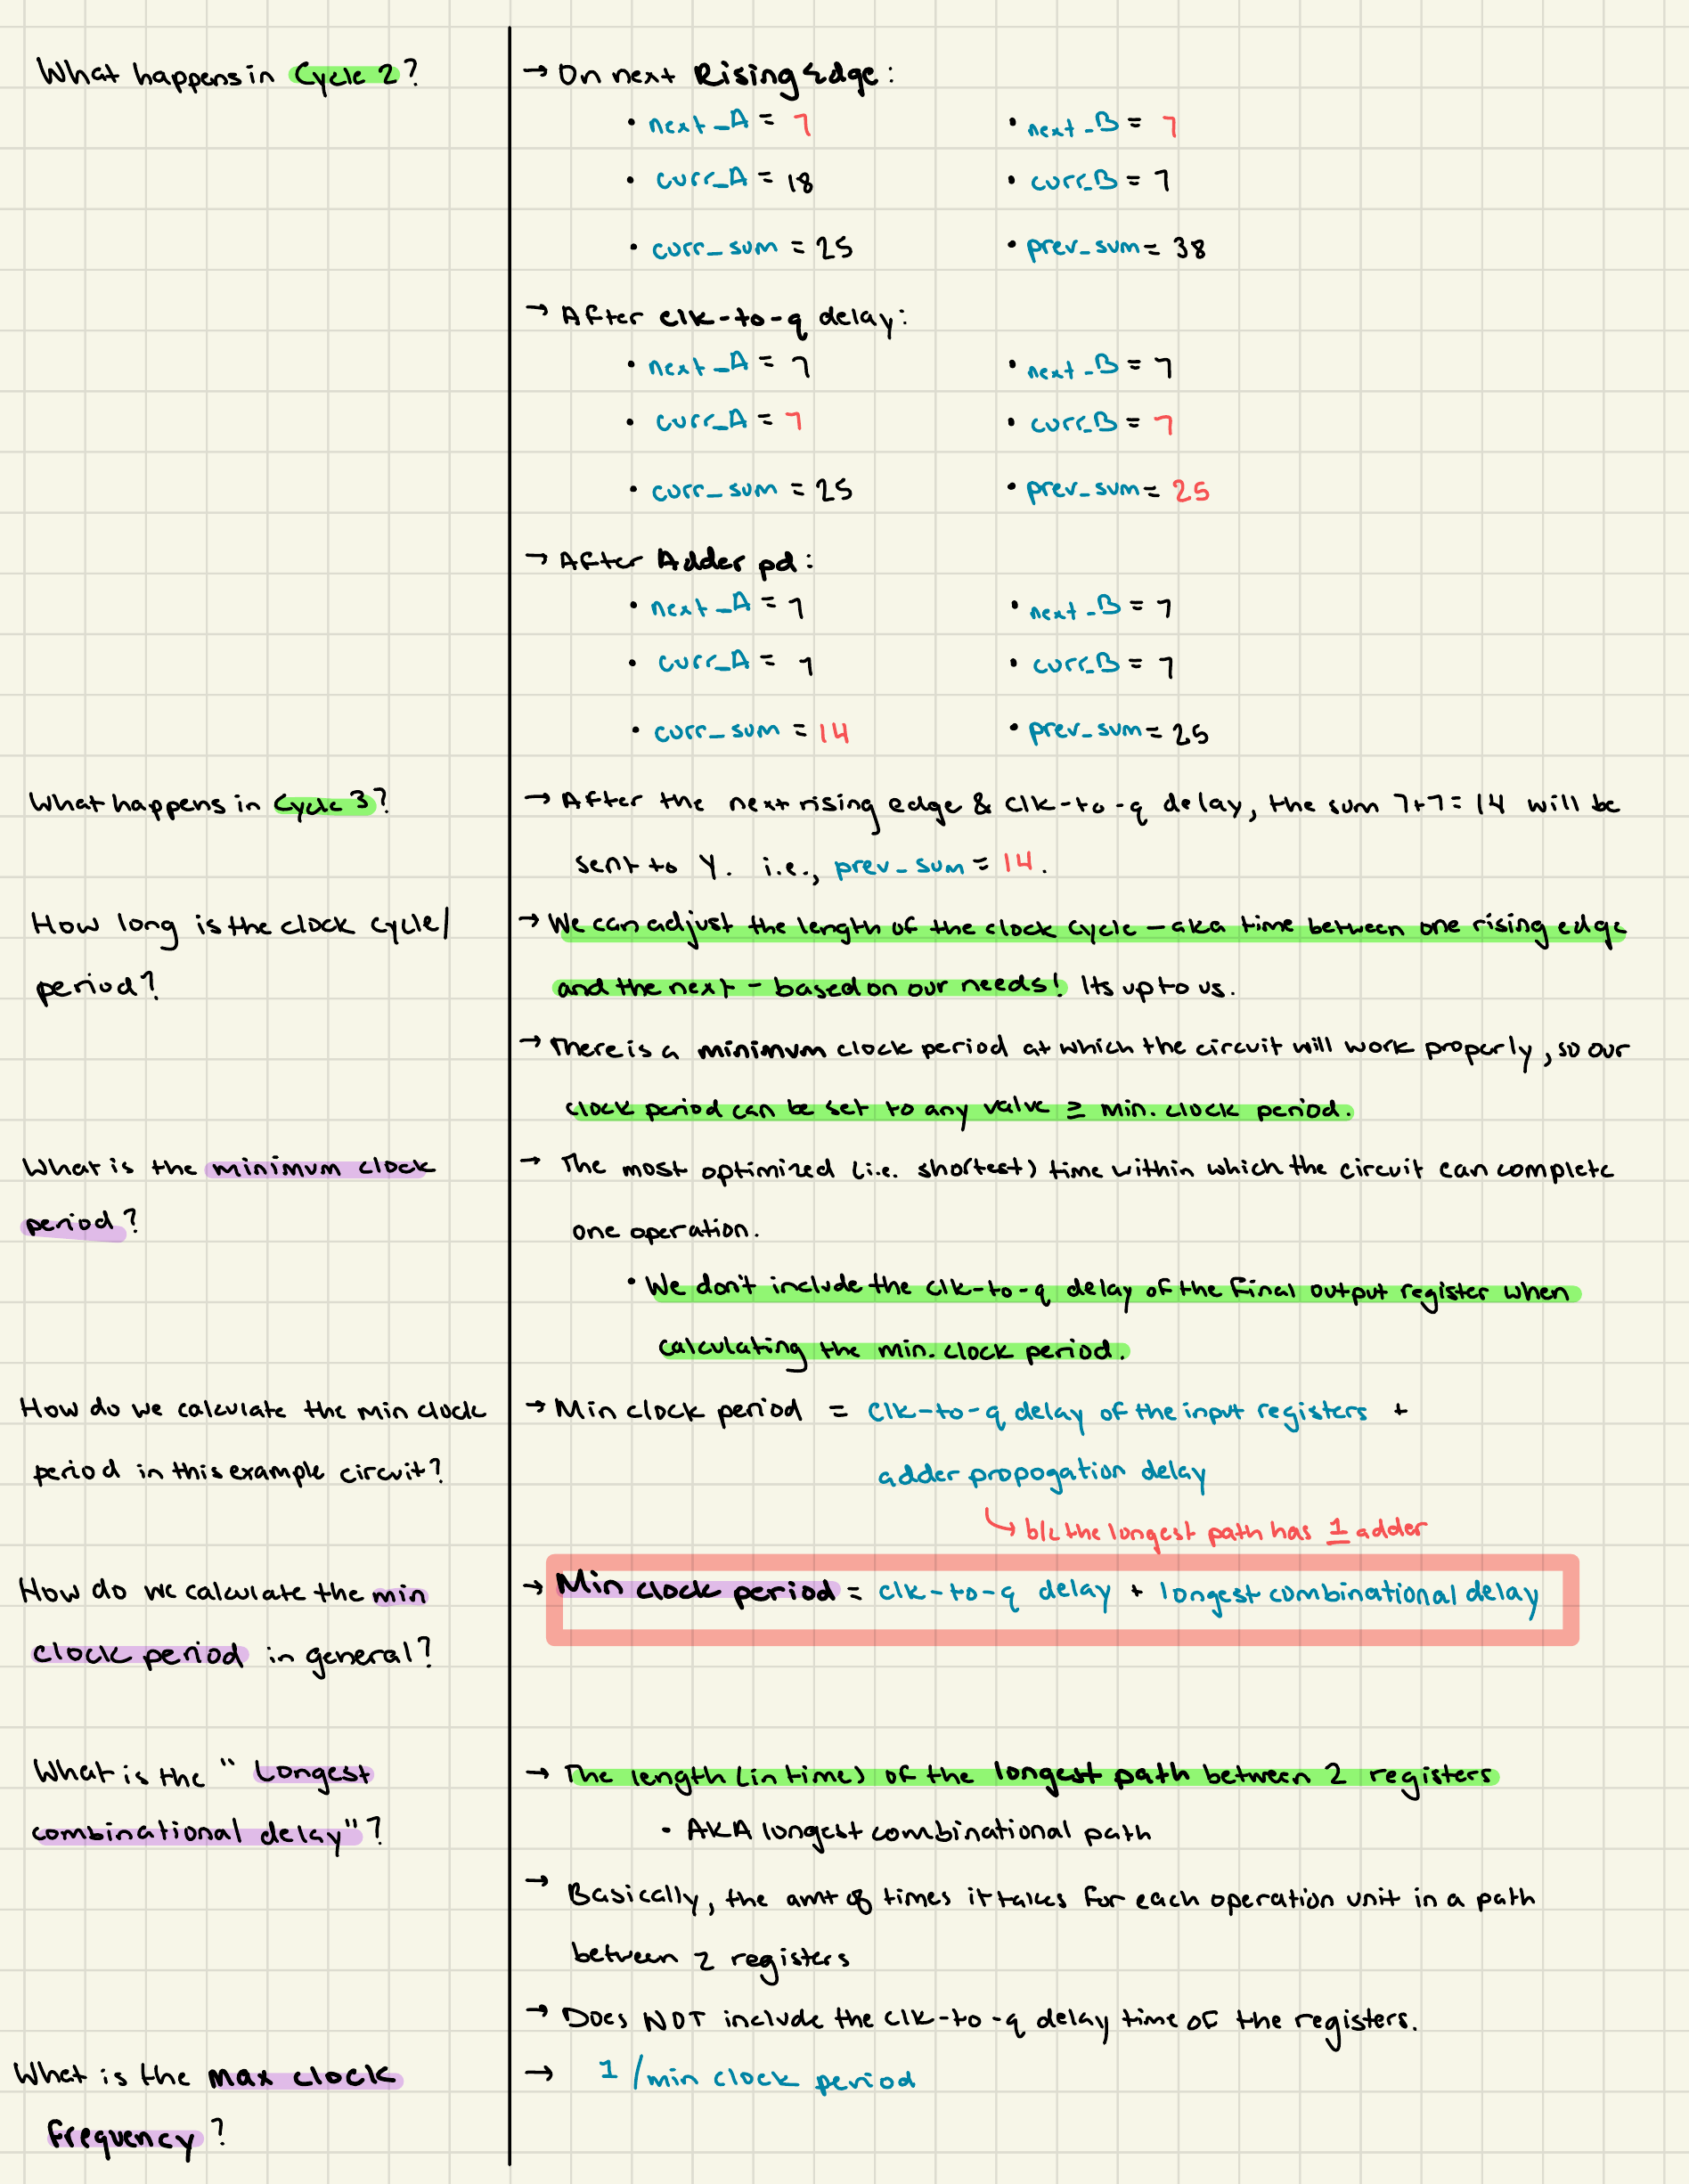 What happens in Cycle 2?
→ On next Rising Edge:
• next_A = 7 • next_B = 7
• curr_A = 18 • curr_B = 7
• curr_sum = 25 • prev_sum = 38
→ After clk-to-q delay:
• next_A = 7 • next_B = 7
• curr_A = 7 • curr_B = 7
• curr_sum = 25 • prev_sum = 25
→ After Adder pd:
• next_A = 7 • next_B = 7
• curr_A = 7 • curr_B = 7
• curr_sum = 14 • prev_sum = 25
What happens in Cycle 3?
→ After the next rising edge & clk-to-q delay, the sum 7+7=14 will be
sent to Y. i.e., prev_sum = 14.
How long is the clock cycle/
period?
→ We can adjust the length of the clock cycle – aka time between one rising edge
and the next – based on our needs! Its up to us.
→ There is a minimum clock period at which the circuit will work properly, so our
clock period can be set to any value ≥ min. clock period.
What is the minimum clock
period?
→ The most optimized (i.e. shortest) time within which the circuit can complete
one operation.
• We don't include the clk-to-q delay of the final output register when
calculating the min. clock period.
How do we calculate the min clock
period in this example circuit?
→ Min clock period = clk-to-q delay of the input registers +
adder propogation delay
↳ b/c the longest path has 1 adder
How do we calculate the min
clock period in general?
→ Min clock period = clk-to-q delay + longest combinational delay
What is the "Longest
combinational delay"?
→ The length (in time) of the longest path between 2 registers
• AKA longest combinational path
→ Basically, the amt of times it takes for each operation unit in a path
between 2 registers
→ Does NOT include the clk-to-q delay time of the registers.
What is the max clock
frequency?
→ 1/min clock period